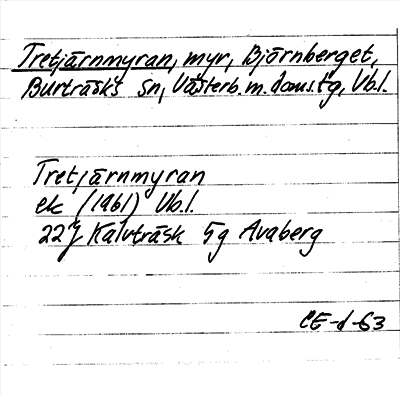 Tretjärnmyran, myr, Björnberget,
Burträsks sn, Västerb. m. doms. tg, Vb.l.
Tretjärnmyran
ek (1961) Vb.l.
22J Kalvträsk 5g Avaberg
CE-d-63